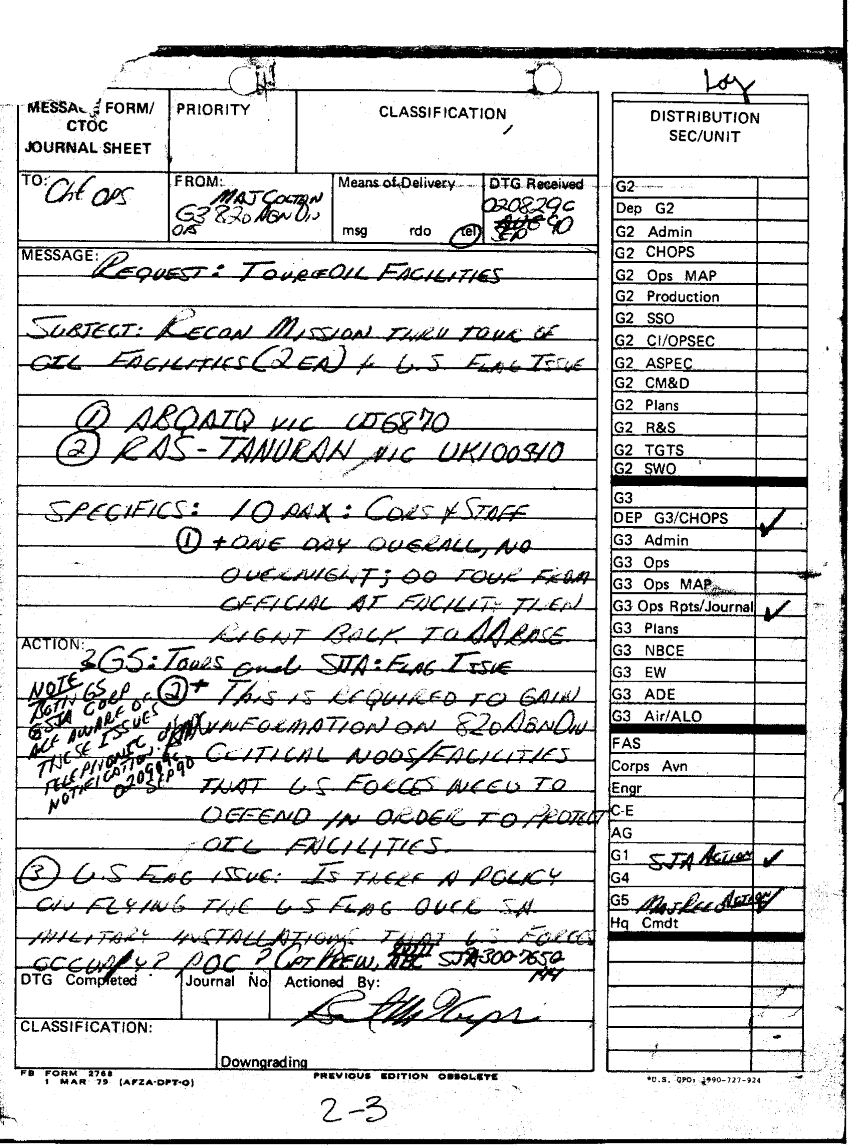 Log
MESSAGE FORM/
CTOC
JOURNAL SHEET
PRIORITY
CLASSIFICATION
TO: Chf OPS
FROM: MAJ
G3 82D ABN DIV
Means of Delivery
msg rdo tel
DTG Received
020829C
SEP 90
MESSAGE:
REQUEST: TOUR OIL FACILITIES
SUBJECT: RECON MISSION THRU TOUR OF
OIL FACILITIES (2 EA) + U.S FLAG ISSUE
① ABQAIQ VIC
② RAS-TANURAH VIC
SPECIFICS: 10 PAX: CDRS & STAFF
① + ONE DAY OVERALL, NO
OVERNIGHT; DO TOUR FROM
OFFICIAL AT FACILITY THEN
RIGHT BACK TO AA BASE
ACTION:
G5: TOURS and SJA: FLAG ISSUE
NOTE
BOTH G5
& SJA CORP
ARE AWARE OF
THESE ISSUES
TELEPHONIC
NOTIFICATION
020909C
SEP 90
② + THIS IS REQUIRED TO GAIN
INFORMATION ON 82D ABN DIV
CRITICAL NODS/FACILITIES
THAT US FORCES NEED TO
DEFEND IN ORDER TO PROTECT
OIL FACILITIES.
③ U.S FLAG ISSUE: IS THERE A POLICY
ON FLYING THE US FLAG OVER SA
MILITARY INSTALLATIONS THAT US FORCES
OCCUPY? POC? CPT SJA
DTG Completed
Journal No
Actioned By:
CLASSIFICATION:
Downgrading
FB FORM 2768
1 MAR 79 (AFZA-DPT-O)
PREVIOUS EDITION OBSOLETE
DISTRIBUTION
SEC/UNIT
G2
Dep G2
G2 Admin
G2 CHOPS
G2 Ops MAP
G2 Production
G2 SSO
G2 CI/OPSEC
G2 ASPEC
G2 CM&D
G2 Plans
G2 R&S
G2 TGTS
G2 SWO
G3
DEP G3/CHOPS ✓
G3 Admin
G3 Ops
G3 Ops MAP
G3 Ops Rpts/Journal ✓
G3 Plans
G3 NBCE
G3 EW
G3 ADE
G3 Air/ALO
FAS
Corps Avn
Engr
C-E
AG
G1 SJA Action ✓
G4
G5 Action ✓
Hq Cmdt
*U.S. GPO: 1990-727-924
2-3